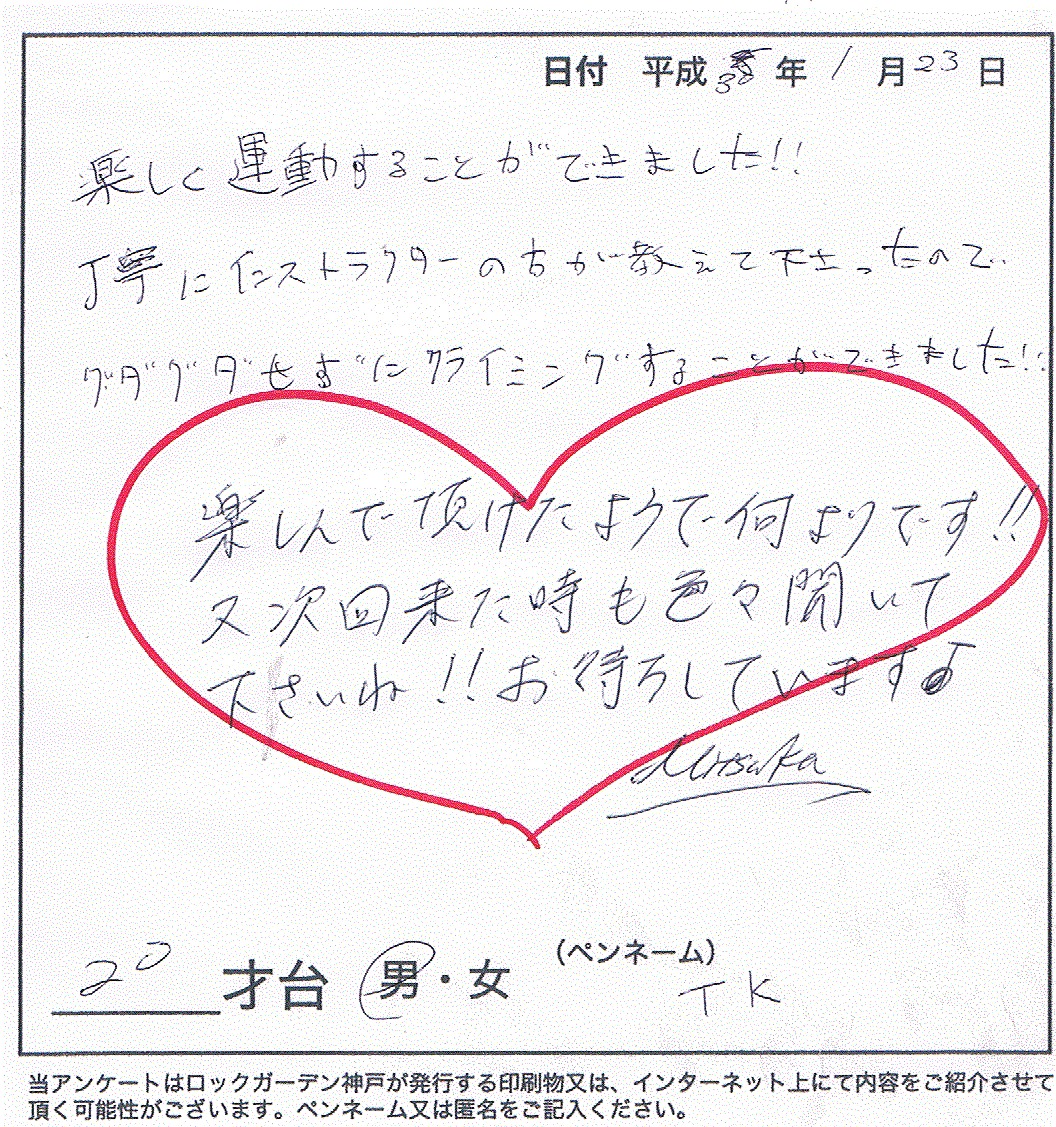 日付 平成30年1月23日
楽しく運動することができました!!
丁寧にインストラクターの方が教えて下さったので
グダグダせずにクライミングすることができました!!
楽しんで頂けたようで何よりです!!
又次回来た時も色々聞いて
下さいね!!お待ちしています♪
Mitsuka
20才台 男・女 (ペンネーム)
TK
当アンケートはロックガーデン神戸が発行する印刷物又は、インターネット上にて内容をご紹介させて
頂く可能性がございます。ペンネーム又は匿名をご記入ください。